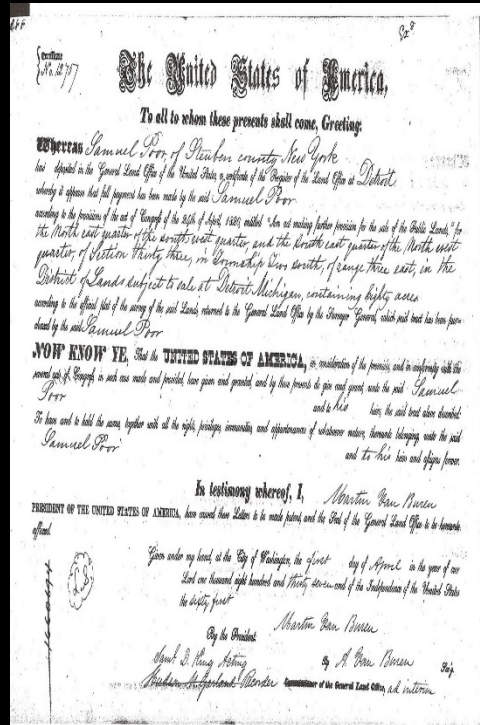 Certificate
No. 12757
The United States of America,
To all to whom these presents shall come, Greeting:
Whereas Samuel Poor, of Steuben county New York
has deposited in the General Land Office of the United States, a certificate of the Register of the Land Office at Detroit
whereby it appears that full payment has been made by the said Samuel Poor
according to the provisions of the act of Congress of the 24th of April, 1820, entitled "An act making further provision for the sale of the Public Lands," for
the North east quarter of the south west quarter, and the South east quarter of the North west
quarter, of Section thirty three, in Township Two south, of range three east, in the
District of Lands subject to sale at Detroit Michigan, containing eighty acres
according to the official plat of the survey of the said Lands, returned to the General Land Office by the Surveyor General, which said tract has been pur-
chased by the said Samuel Poor
NOW KNOW YE, That the UNITED STATES OF AMERICA, in consideration of the premises, and in conformity with the
several acts of Congress, in such case made and provided, have given and granted, and by these presents do give and grant, unto the said Samuel
Poor
and to his heirs, the said tract above described:
To have and to hold the same, together with all the rights, privileges, immunities, and appurtenances of whatsoever nature, thereunto belonging, unto the said
Samuel Poor
and to his heirs and assigns forever.
In testimony whereof, I, Martin Van Buren
PRESIDENT OF THE UNITED STATES OF AMERICA, have caused these Letters to be made patent, and the Seal of the General Land Office to be hereunto
affixed.
Given under my hand, at the City of Washington, the first day of April in the year of our
Lord one thousand eight hundred and thirty seven and of the Independence of the United States
the sixty first
L.S.
Martin Van Buren
By the President:
By A. Van Buren Sec'y.
Saml D. King Acting
Recorder Commissioner of the General Land Office, ad interim